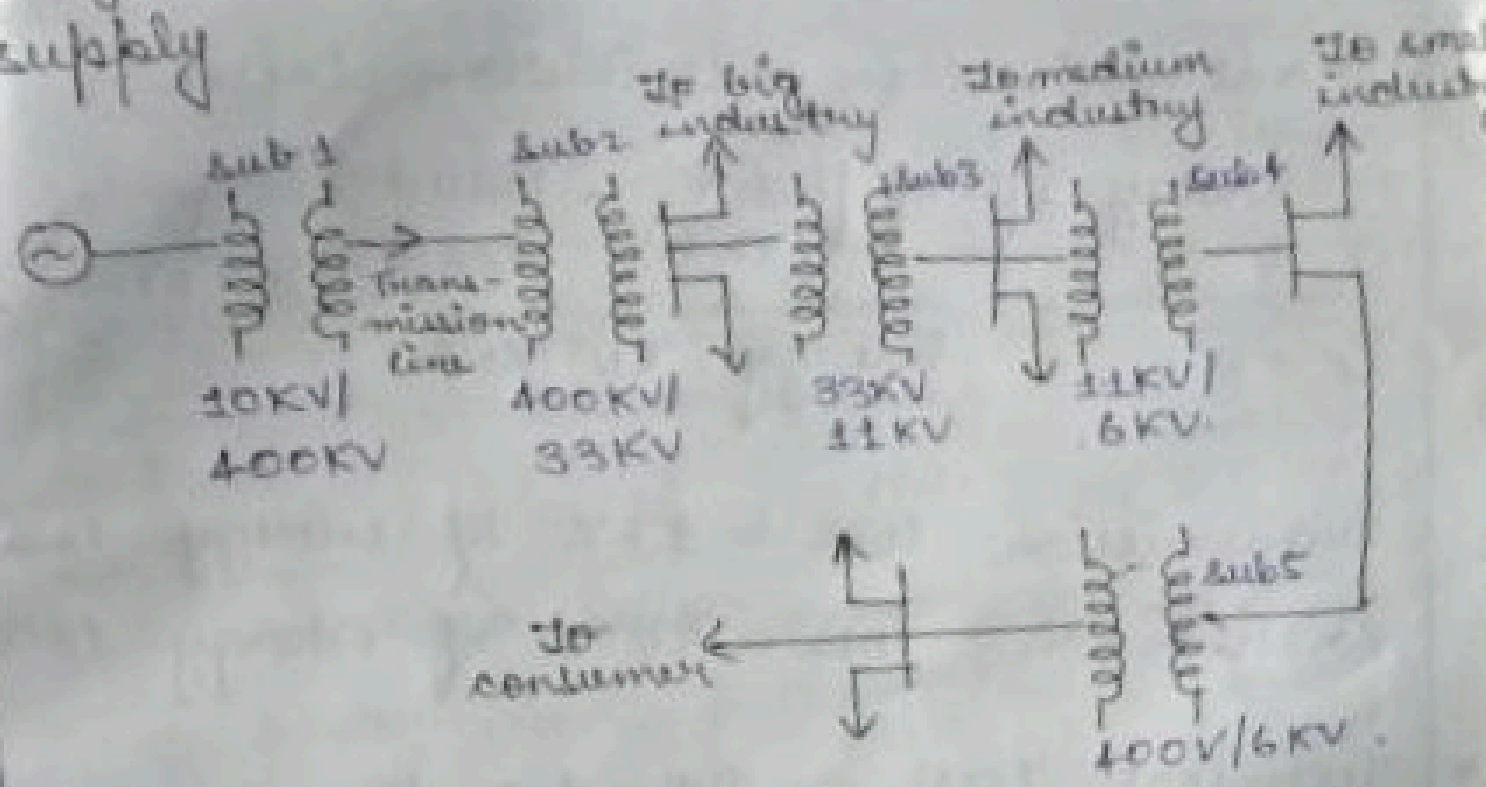 supply
sub 1
Trans-
mission
line
10KV/
400KV
Sub2
400KV/
33KV
To big
industry
Sub3
33KV
11KV
To medium
industry
Sub4
11KV/
6KV.
To smal
indust
Sub5
400V/6KV.
To
consumer